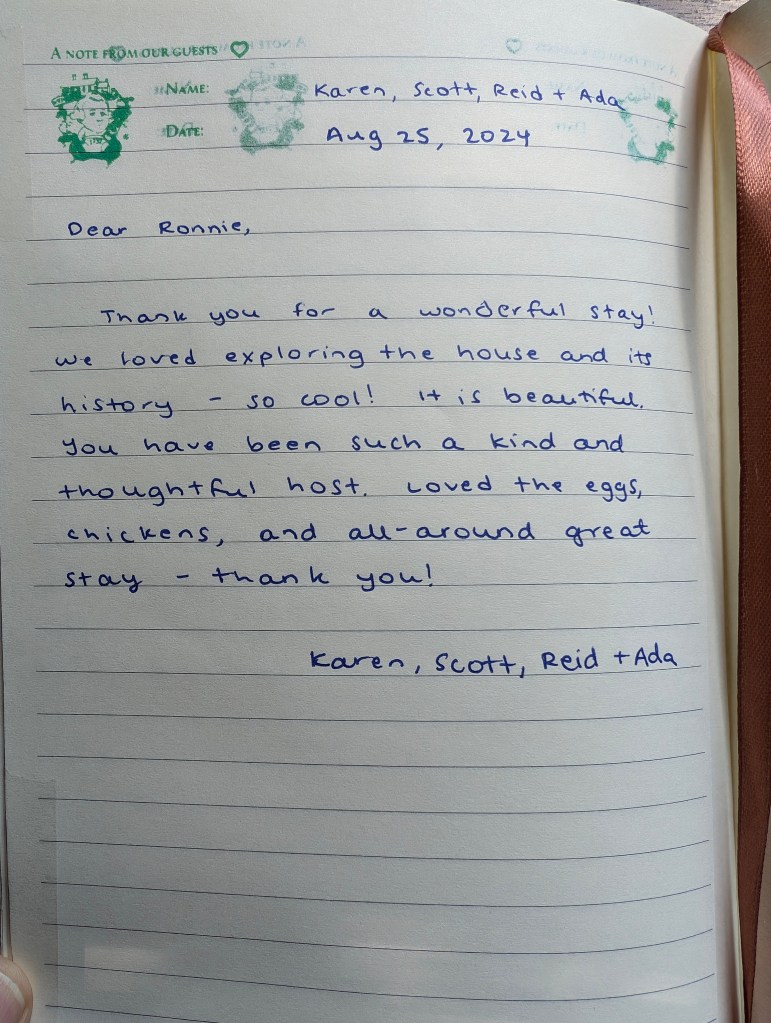 A NOTE FROM OUR GUESTS
NAME: Karen, Scott, Reid + Ada
DATE: Aug 25, 2024
Dear Ronnie,
Thank you for a wonderful stay!
we loved exploring the house and its
history - so cool! It is beautiful.
You have been such a kind and
thoughtful host. Loved the eggs,
chickens, and all-around great
stay - thank you!
Karen, Scott, Reid + Ada